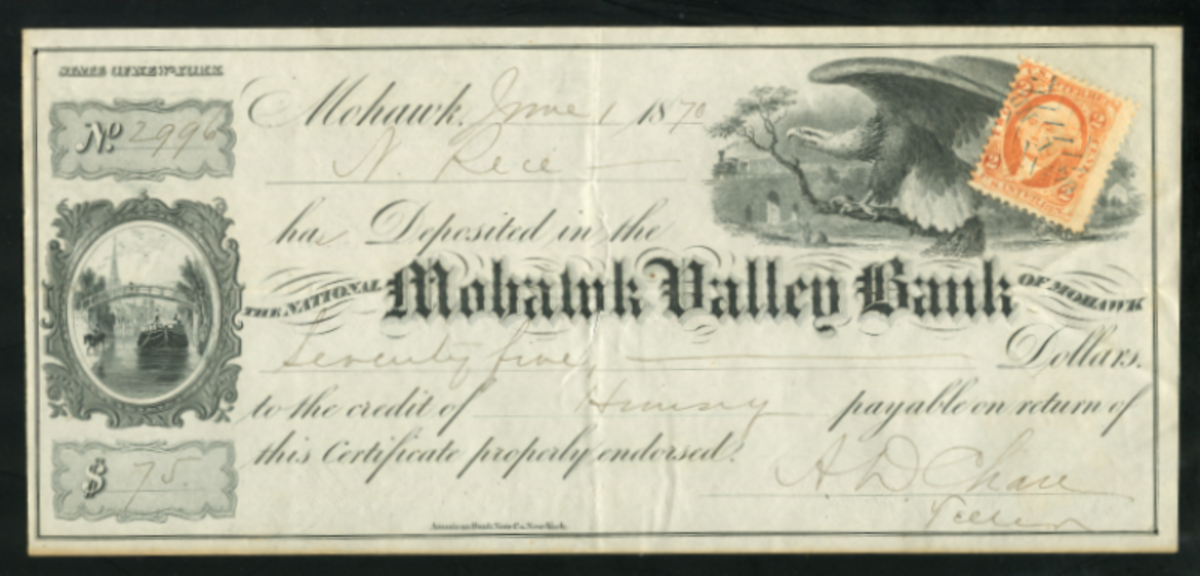 STATE OF NEW-YORK
No 2996
Mohawk, June 1 1870
N. Rice
has Deposited in the
THE NATIONAL Mohawk Valley Bank OF MOHAWK
Seventy five Dollars.
to the credit of payable on return of
this Certificate properly endorsed.
$ 75.
A. D. Chase
Teller
American Bank Note Co. New York.